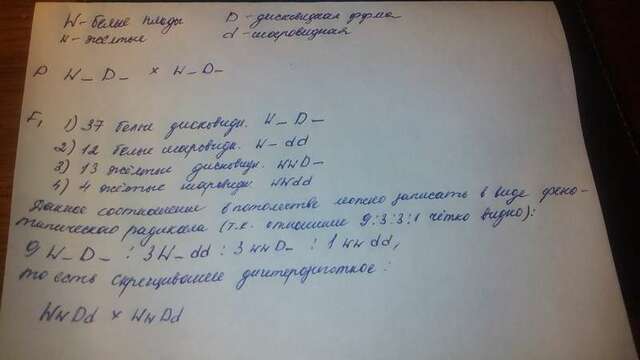 W - белые плоды D - дисковидная форма
w - жёлтые d - шаровидная
P W_ D_ × W_ D_
F₁ 1) 37 белые дисковидн. W_ D_
2) 12 белые шаровидн. W_ dd
3) 13 жёлтые дисковидн. wwD_
4) 4 жёлтые шаровидн. wwdd
Данное соотношение в потомстве можно записать в виде фено-
типического радикала (т.к. отношение 9:3:3:1 чётко видно):
9 W_D_ : 3W_dd : 3 wwD_ : 1 wwdd,
то есть скрещивание дигетерозиготное:
WwDd × WwDd